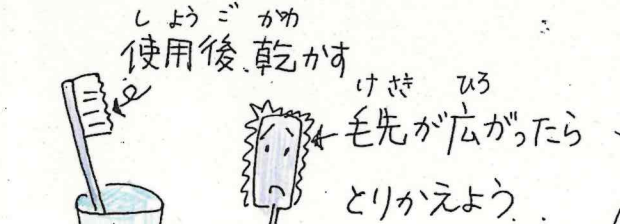 しようご かわ
使用後、乾かす
けさき ひろ
毛先が広がったら
とりかえよう